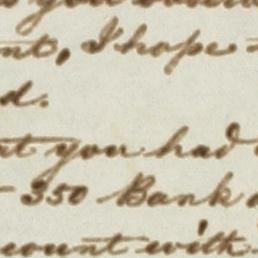 you
nt, I hope
d.
at you had
350 Bank
count with